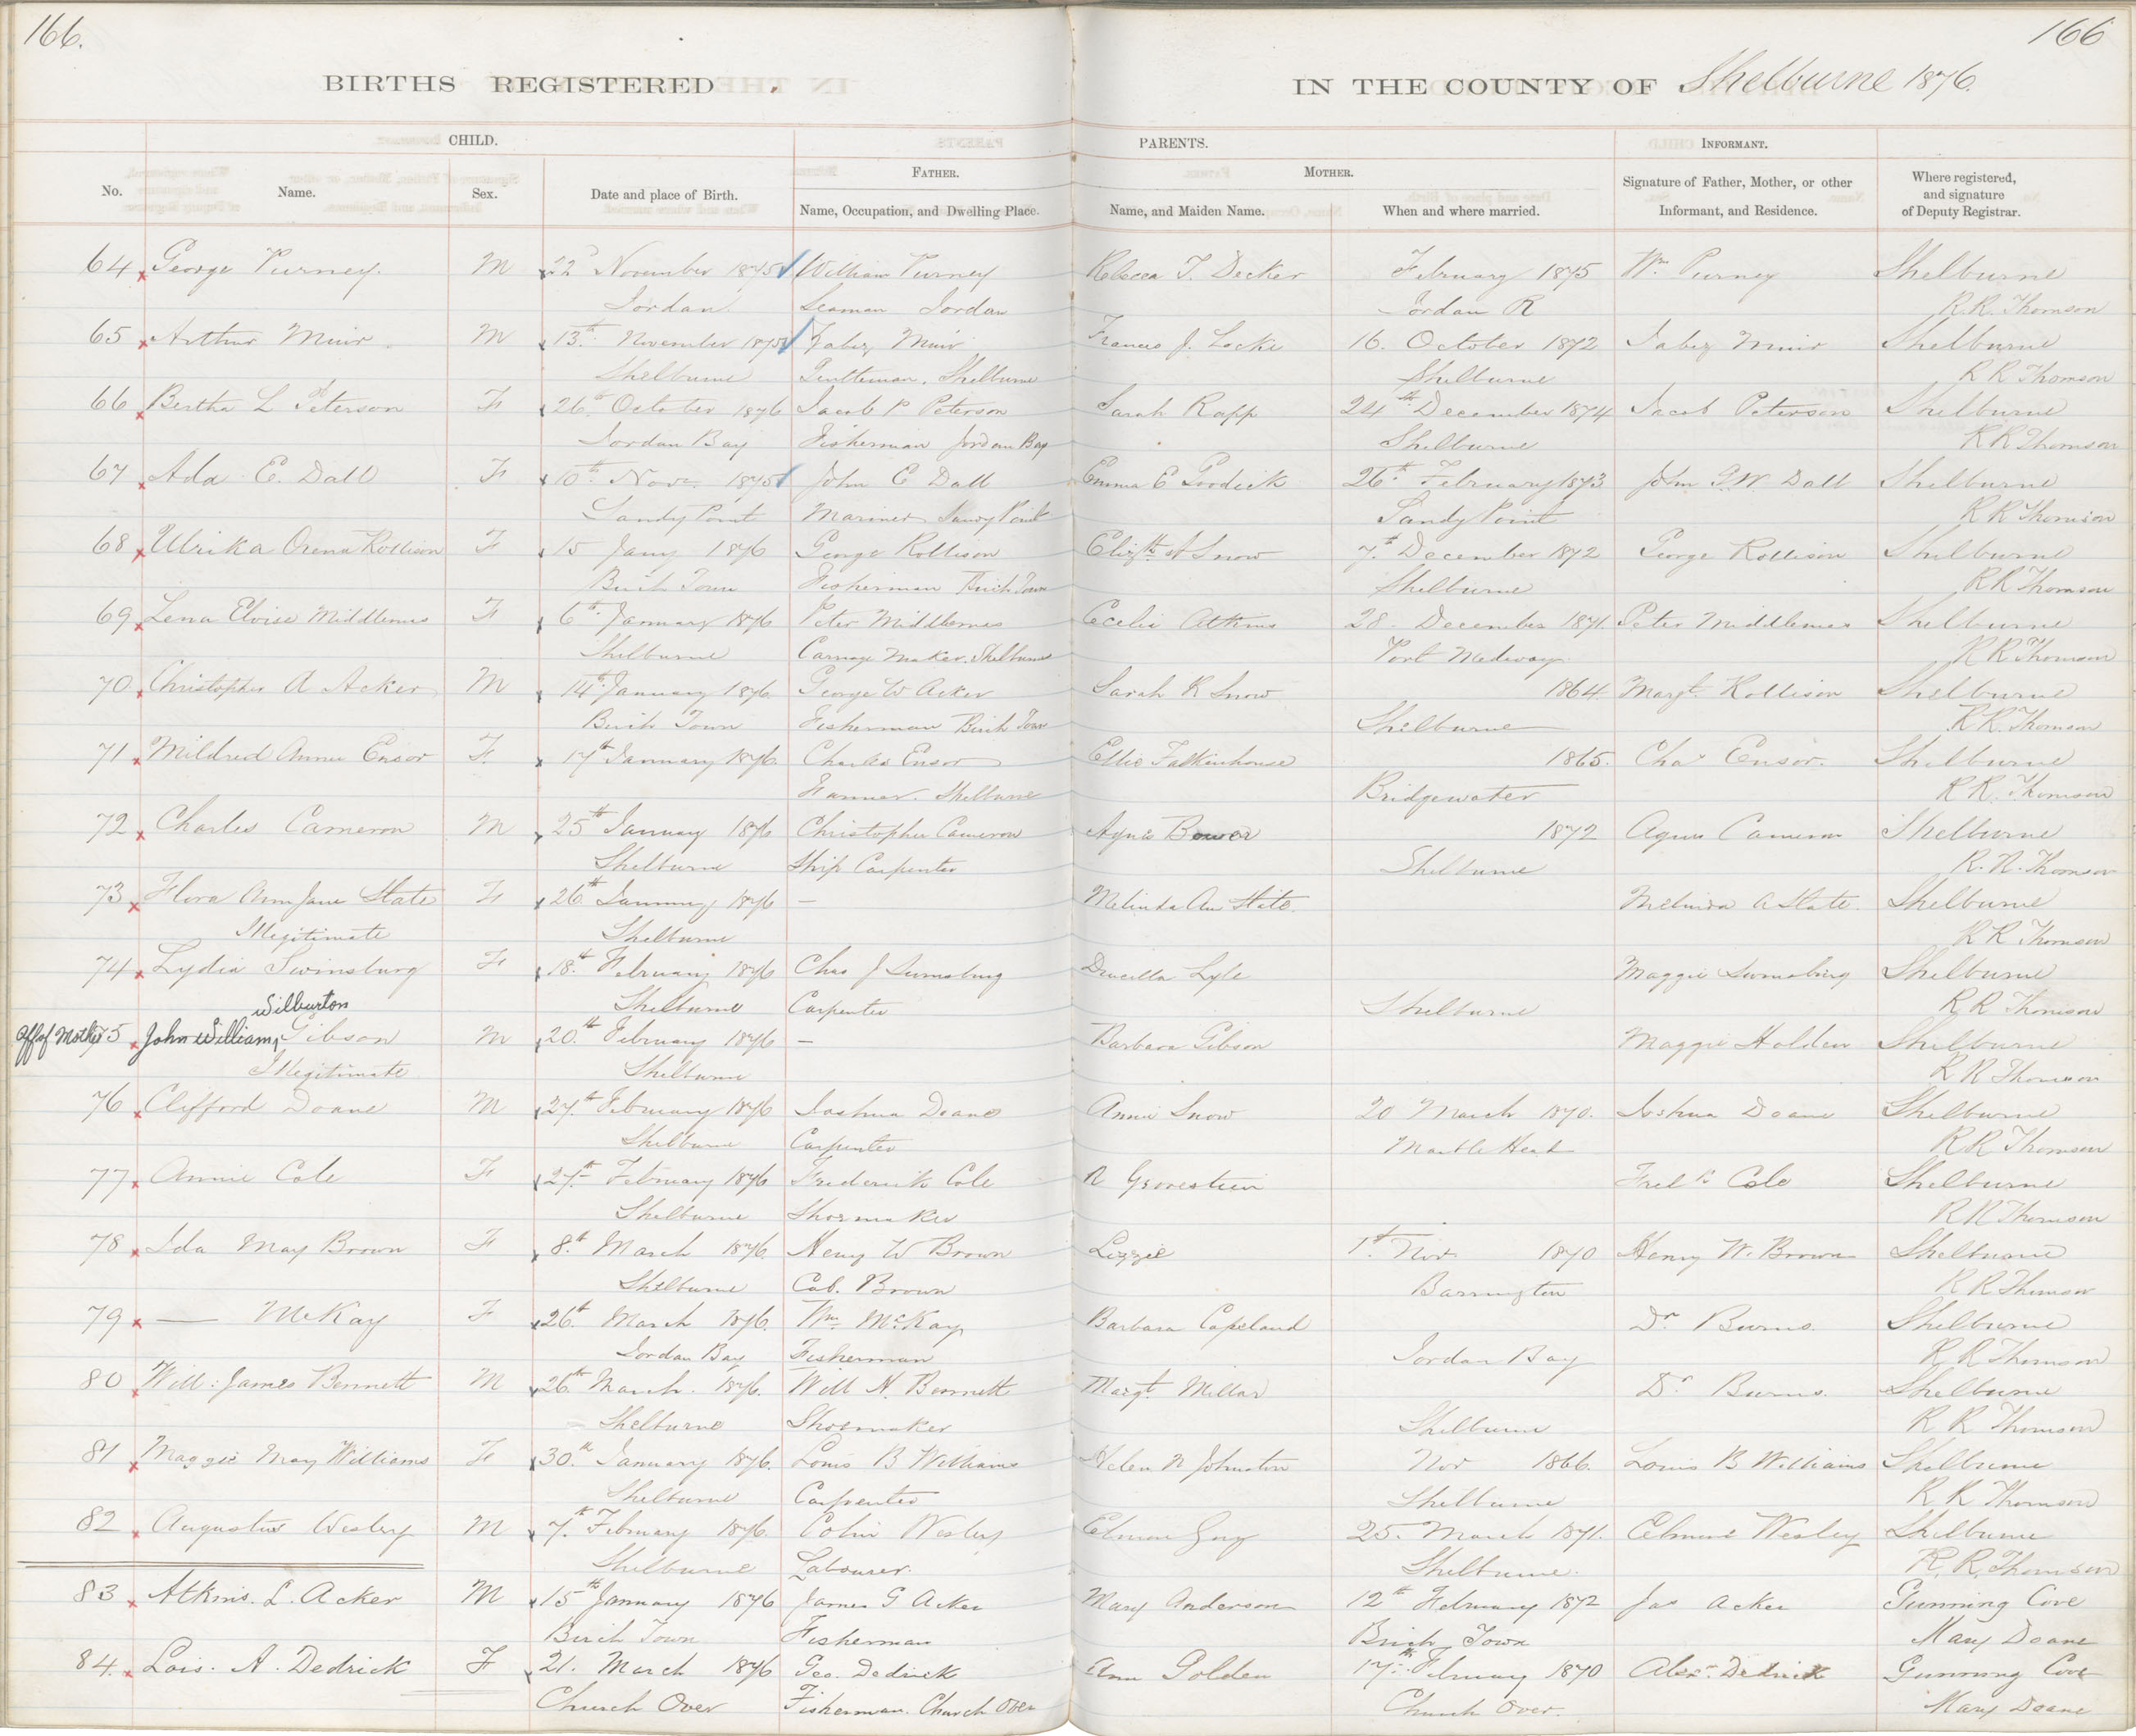 166.
166
BIRTHS REGISTERED
IN THE COUNTY OF Shelburne 1876.
CHILD.
PARENTS.
INFORMANT.
No.
Name.
Sex.
Date and place of Birth.
FATHER.
Name, Occupation, and Dwelling Place.
MOTHER.
Name, and Maiden Name.
When and where married.
Signature of Father, Mother, or other Informant, and Residence.
Where registered, and signature of Deputy Registrar.
64 George Purney. M 22d November 1875 William Purney Rebecca T. Decker February 1875 Wm Purney Shelburne
Jordan Seaman Jordan Jordan R R.R. Thomson
65 Arthur Muir. M 13th November 1875 Jabez Muir Frances J. Locke 16. October 1872 Jabez Muir Shelburne
Shelburne Gentleman. Shelburne Shelburne R R Thomson
66 Bertha L Peterson F 26th October 1876 Jacob P Peterson Sarah Rapp 24th December 1874 Jacob Peterson Shelburne
Jordan Bay Fisherman Jordan Bay Shelburne R R Thomson
67 Ada E. Dall F 10th Novr. 1875 John C Dall Emma E Goodick 26th February 1873 John G.W. Dall Shelburne
Sandy Point Mariner Sandy Point Sandy Point R R Thomson
68 Ulrika Orena Rollison F 15 Jany 1876 George Rollison Elizth A Snow 7th December 1872 George Rollison Shelburne
Birch Town Fisherman Birch Town Shelburne R R Thomson
69 Lena Eloise Middlemas F 6th January 1876 Peter Middlemas Ecelia Atkins 28. December 1871. Peter Middlemas Shelburne
Shelburne Carriage Maker. Shelburne Port Medway. R R Thomson
70 Christopher A Acker M 14th January 1876. George W Acker Sarah K Snow 1864. Margt. Rollison Shelburne
Birch Town Fisherman Birch Town Shelburne R R. Thomson
71 Mildred Annie Ensor F. 17th January 1876. Charles Ensor Ellie Falkinhouse 1865. Chas Ensor. Shelburne
Farmer. Shelburne Bridgewater R R. Thomson
72 Charles Cameron M 25th January 1876 Christopher Cameron Agnes Bower 1872 Agnes Cameron Shelburne
Shelburne Ship Carpenter Shelburne R. R. Thomson
73 Flora Ann Jane State F 26th January 1876 — Melinda Ann State. Melinda A State. Shelburne
Illegitimate Shelburne R R Thomson
74 Lydia Swinsburg F 18th February 1876 Chas J Swinsburg Drucilla Lyle Maggie Swinsburg Shelburne
Wilburton Shelburne Carpenter Shelburne R R Thomson
Aff of Mother 75 John William Gibson M 20th February 1876 — Barbara Gibson Maggie Holden Shelburne
Illegitimate Shelburne R R Thomson
76 Clifford Doane M 27th February 1876 Joshua Doane Annie Snow 20 March 1870. Joshua Doane Shelburne
Shelburne Carpenter Marble Head R R Thomson
77 Annie Cole F 27th February 1876 Frederick Cole R Grovestien Fredk Cole Shelburne
Shelburne Shoemaker R R Thomson
78 Ida May Brown F 8th March 1876. Henry W Brown Lizzie 1st Nov 1870 Henry W. Brown Shelburne
Shelburne Cab. Brown Barrington R R Thomson
79 — McKay F 26th March 1876. Wm McKay Barbara Copeland Dr Burns. Shelburne
Jordan Bay Fisherman Jordan Bay R R Thomson
80 Will: James Bennett M 26th March. 1876. Will N. Bennett Margt. Millar Dr Burns. Shelburne
Shelburne Shoemaker Shelburne R R Thomson
81 Maggie May Williams F 30th January 1876. Louis B Williams Helen N Johnston Nov 1866. Louis B Williams Shelburne
Shelburne Carpenter Shelburne R R Thomson
82 Augustus Wesley M 7th February 1876. Colin Wesley 25. March 1871. Wesley Shelburne
Shelburne Labourer. Shelburne. R. R. Thomson
83 Atkins. L. Acker M 15th January 1876 James G Acker Mary Anderson 12th February 1872 Jas Acker Gunning Cove
Birch Town Fisherman Birch Town Mary Doane
84. Lois. A. Dedrick F 21. March 1876 Geo. Dedrick Ann Golden 17th February 1870 Alexr. Dedrick Gunning Cove
Church Over Fisherman. Church Over Church Over. Mary Doane